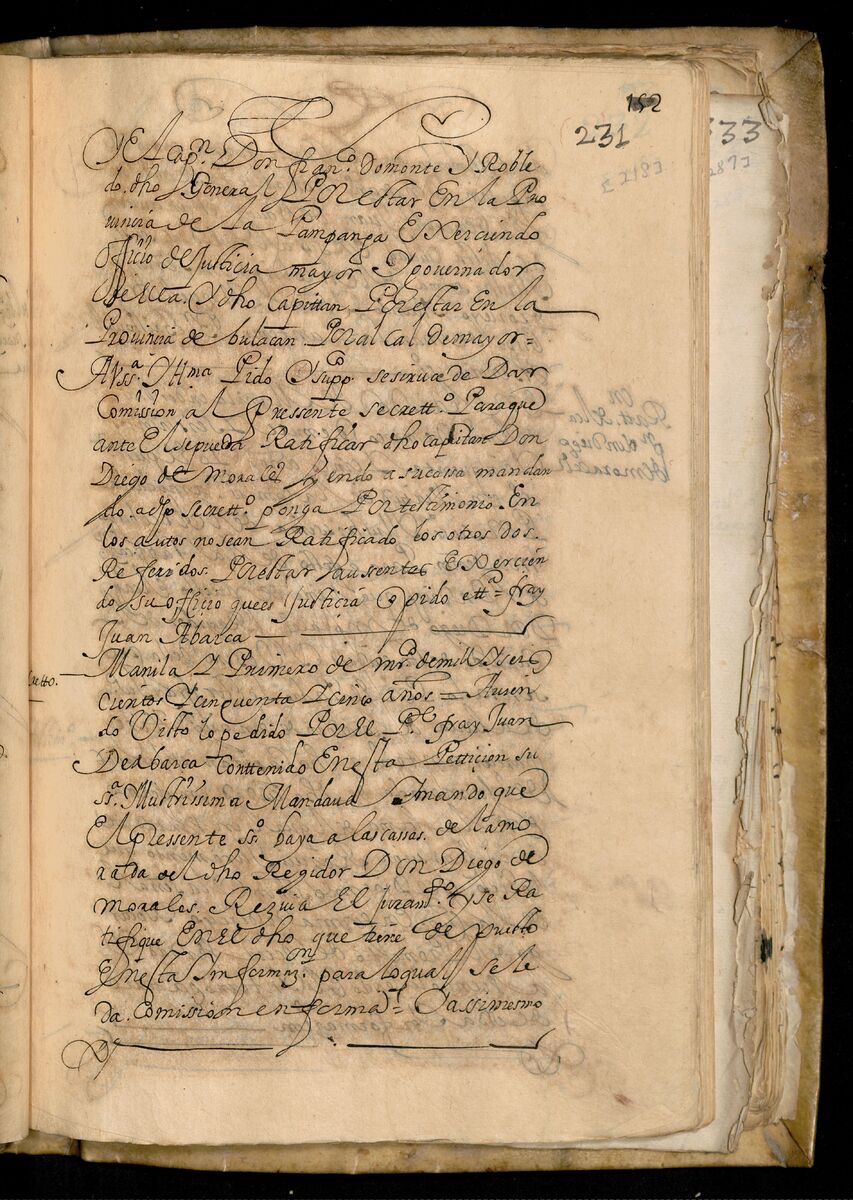 152
231
333
2183
2873
Y El Capn Don franco Domonte Y Roble
do. dho General Por estar En la Pro
uincia de La Pampanga Exerciendo
officio de Justicia mayor Y governador
de ella. Y dho Capittan Por estar En la
Prouincia de bulacan Por al Cal de mayor =
A Vssa Yllma Pido Y suppco se sirua de Dar
Comission al Pressente secretto Para que
ante El se pueda Ratificar dho capitan Don
Diego de Morales yendo a su cassa mandan
do a dho secretto ponga Por testimonio En
los autos no sean Ratificado los otros dos.
Referidos. Por estar ausentes Exercien
do su officio que es Justicia q pido etta = fray
Juan Abarca
Manila Y Primero de mço de mill Y seis
cientos Y cinquenta Y cinco años = Auien
do Visto lo pedido Por El Pe fray Juan
De abarca Conttenido En esta Petticion su
ssa Illustrissima Mandaua Y mando que
El pressente sso baya a las cassas de la mo
rada del dho Regidor Don Diego de
morales. Reziua El juramto y se Ra
tifique En El dho que tiene de puesto
En esta Informazon para lo qual se le
da. Comission en forma = Y assimesmo